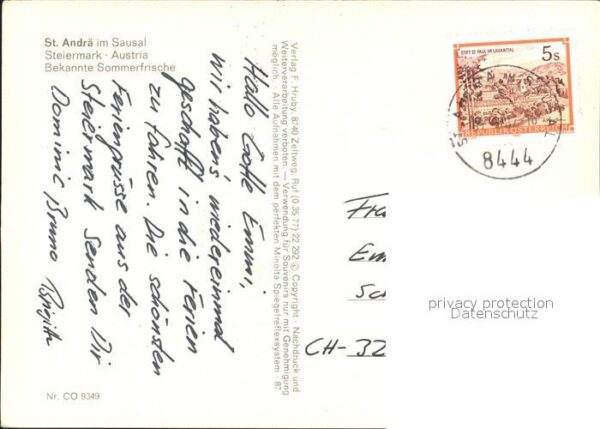 St. Andrä im Sausal
Steiermark - Austria
Bekannte Sommerfrische
Hallo Gotte Emmi,
wir haben's wiedereinmal
geschafft in die Ferien
zu fahren. Die schönsten
Feriengrüsse aus der
Steiermark senden Dir
Dominic Bruno Brigitte
Verlag F. Hruby, 8740 Zeltweg, Ruf (0 35 77) 22 292 © Copyright · Nachdruck und
Weiterverarbeitung verboten. — Verwendung für Souvenirs nur mit Genehmigung
möglich. · Alle Aufnahmen mit dem perfekten Minolta Spiegelreflexsystem · 87
STIFT ST. PAUL IM LAVANTTAL
5s
REPUBLIK ÖSTERREICH
8444
Fra
Em
Sc
CH-32
privacy protection
Datenschutz
Nr. CO 9349